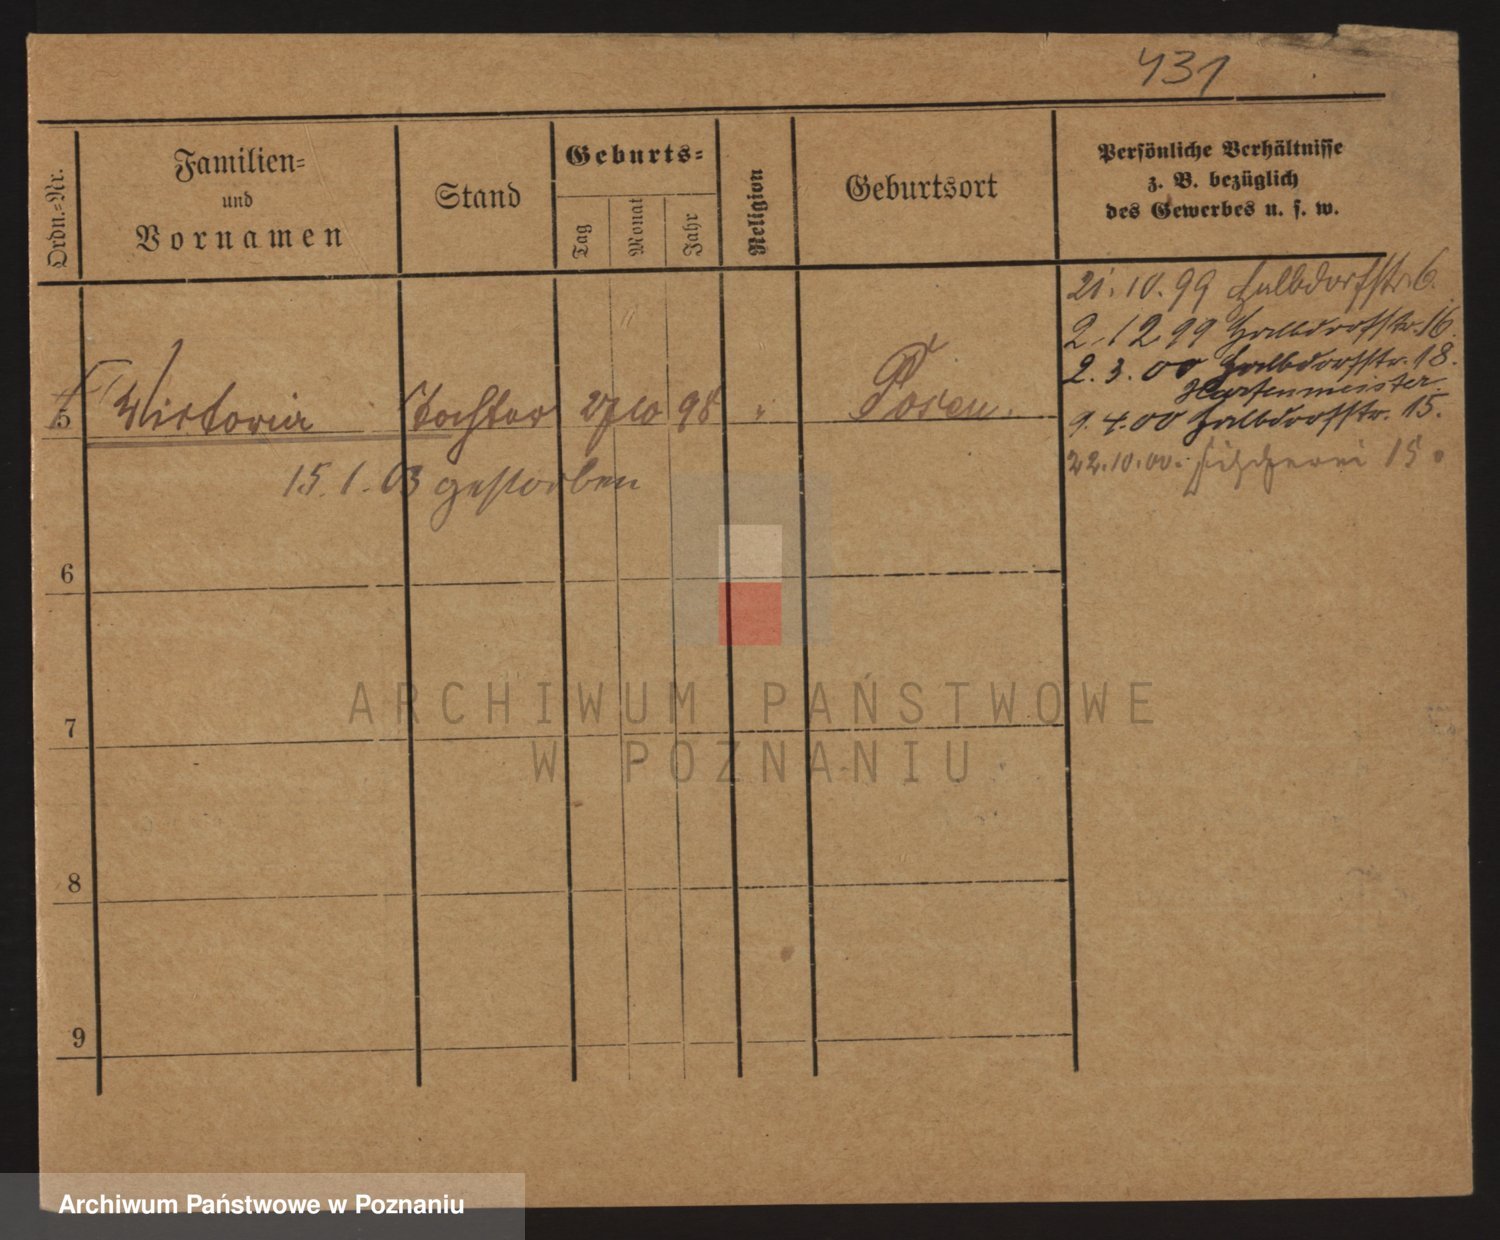 431
Ordn.=Nr.
Familien=
und
Vornamen
Stand
Geburts=
Tag
Monat
Jahr
Religion
Geburtsort
Persönliche Verhältnisse
z. B. bezüglich
des Gewerbes u. s. w.
21.10.99 Halbdorfstr. 6.
2.12 99 Halbdorfstr. 16.
2.3.00 Halbdorfstr. 18.
9.4.00 Halbdorfstr. 15.
22.10.00. Fischerei 15.
5 Victoria Tochter 27 10 98 " Posen.
15.1.03 gestorben
6
7
8
9
ARCHIWUM PAŃSTWOWE
W POZNANIU
Archiwum Państwowe w Poznaniu